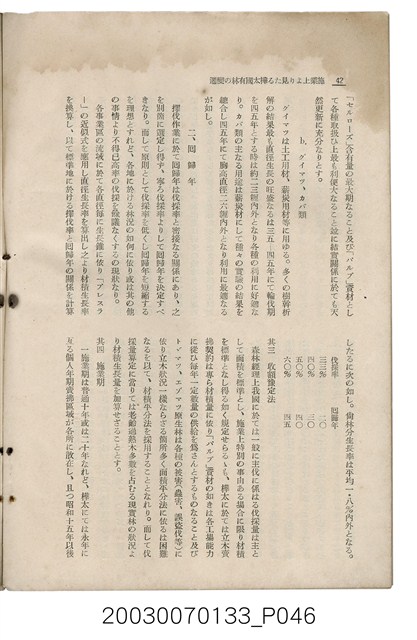 施業上より見たる樺太國有林の變遷
42
「セルローズ」含有量の最大期なること及び「パルプ」資材とし
て各種取扱ひ上最も利便大なること竝に結實關係に於ても天
然更新に充分なりとす。
b. グイマツ、カバ類
グイマツは土工用材、薪炭用材等に用ゆる。多くの樹幹析
解の結果最も直徑生長の旺盛なるは三五—四五年にて輪伐期
を四五年とする時は約二三糎內外となり各種の利用に好適な
り。カバ類の主なる用途は薪炭材にして種々の實驗の結果を
綜合し四五年にて胸高直徑二六糎內外となり利用に最適なる
が如し。
二、回歸年
擇伐作業に於て回歸年は伐採率と密接なる關係にあり、之
を別箇に選定し得ず、寧ろ伐採率よりして回歸年を決定すべ
きなり。而して原則として伐採率を低くし回歸年を短縮する
を理想とすれど、各地に於ける林況の如何に依り或は其の他
の事情より不得已高率の伐採を餘儀なくするの現狀なり。
各事業區の流域に於て各直徑每に生長錐に依り「プレスラ
ー」の近似式を應用し直徑生長率を算出し之より材積生長率
を換算し、以て標準地に於ける擇伐率と回歸年の關係を計算
したるに次の如し。尙林分生長率は平均一・八%內外となる。
伐採率 回歸年
三三% 二〇
四〇% 三〇
五〇% 四〇
六〇% 四五
其三 收穫豫定法
森林經理上我國に於ては一般に主伐に係はる伐採量は主と
して面積を標準とし、施業上特別の事由ある場合に限り材積
を標準となし得る如く規定せらるゝも、樺太に於ては立木賣
拂契約は專ら材積量に依り「パルプ」資材の如きは各工場能力
に從ひ每年一定數量の供給を爲さんとするものなること及び
トドマツ、エゾマツ原生林は各種の被害(蟲害、誤盜伐等)に
依り立木狀況一樣ならざる箇所多く面積平分法に依るは困難
なるを以て、材積平分法を採用することゝなれり。而して伐
採量算定に當りては老齡過熟木多數を占むる現實林の狀況よ
り材積生長量を加算せざることとす。
其四 施業期
一施業期は普通十年或は二十年なれど、樺太にては永年に
亙る個人年期賣拂區域が各所に散在し、且つ昭和十五年以後
20030070133_P046